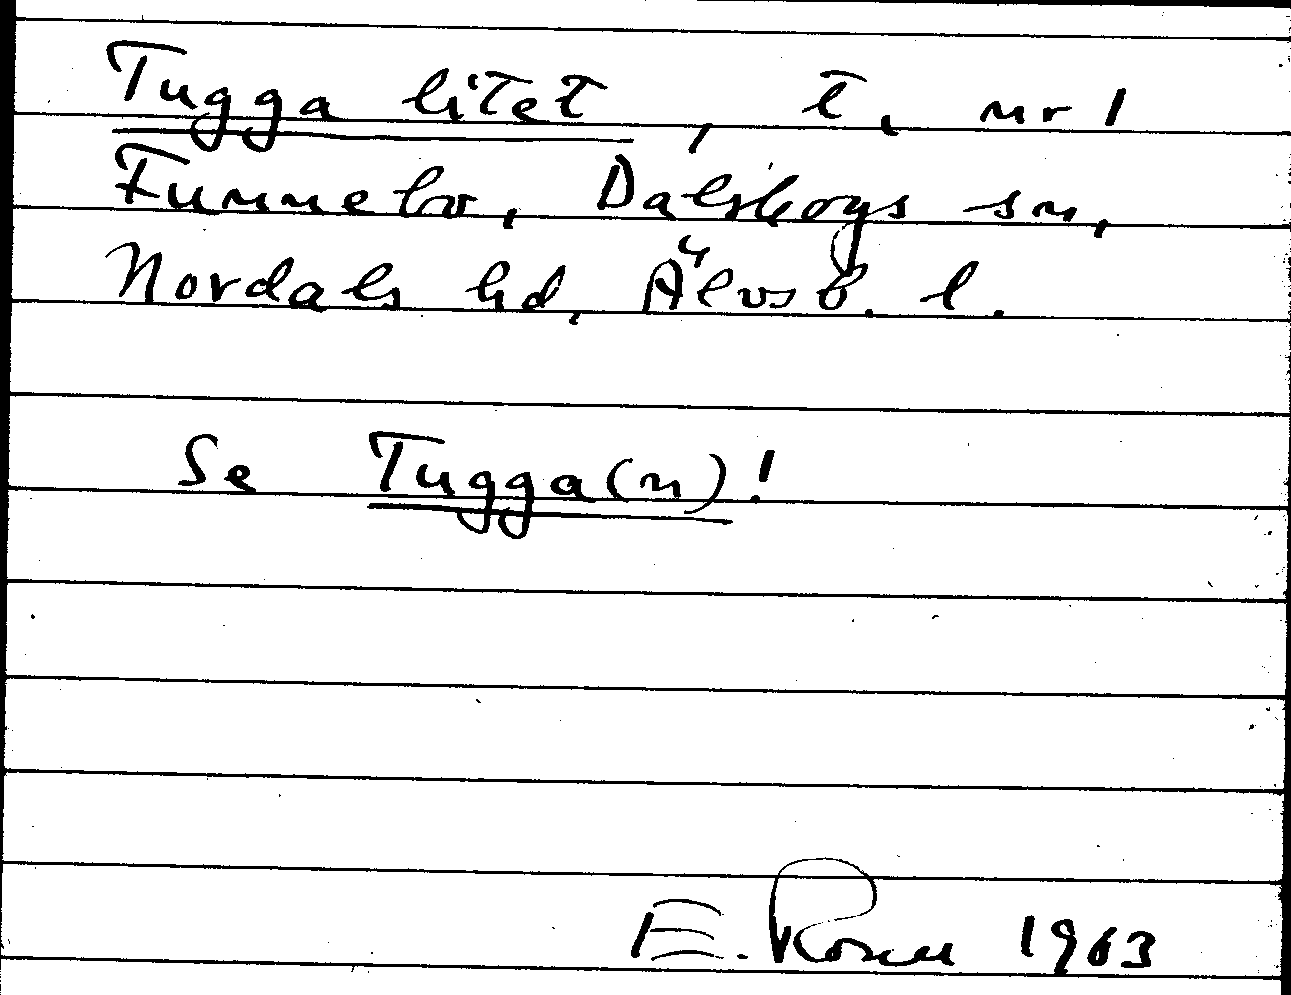 Tugga litet, t. nr 1
Funnebo, Dalskogs sn,
Nordals hd, Älvsb. l.
Se Tugga(n)!
E. Rosen 1963